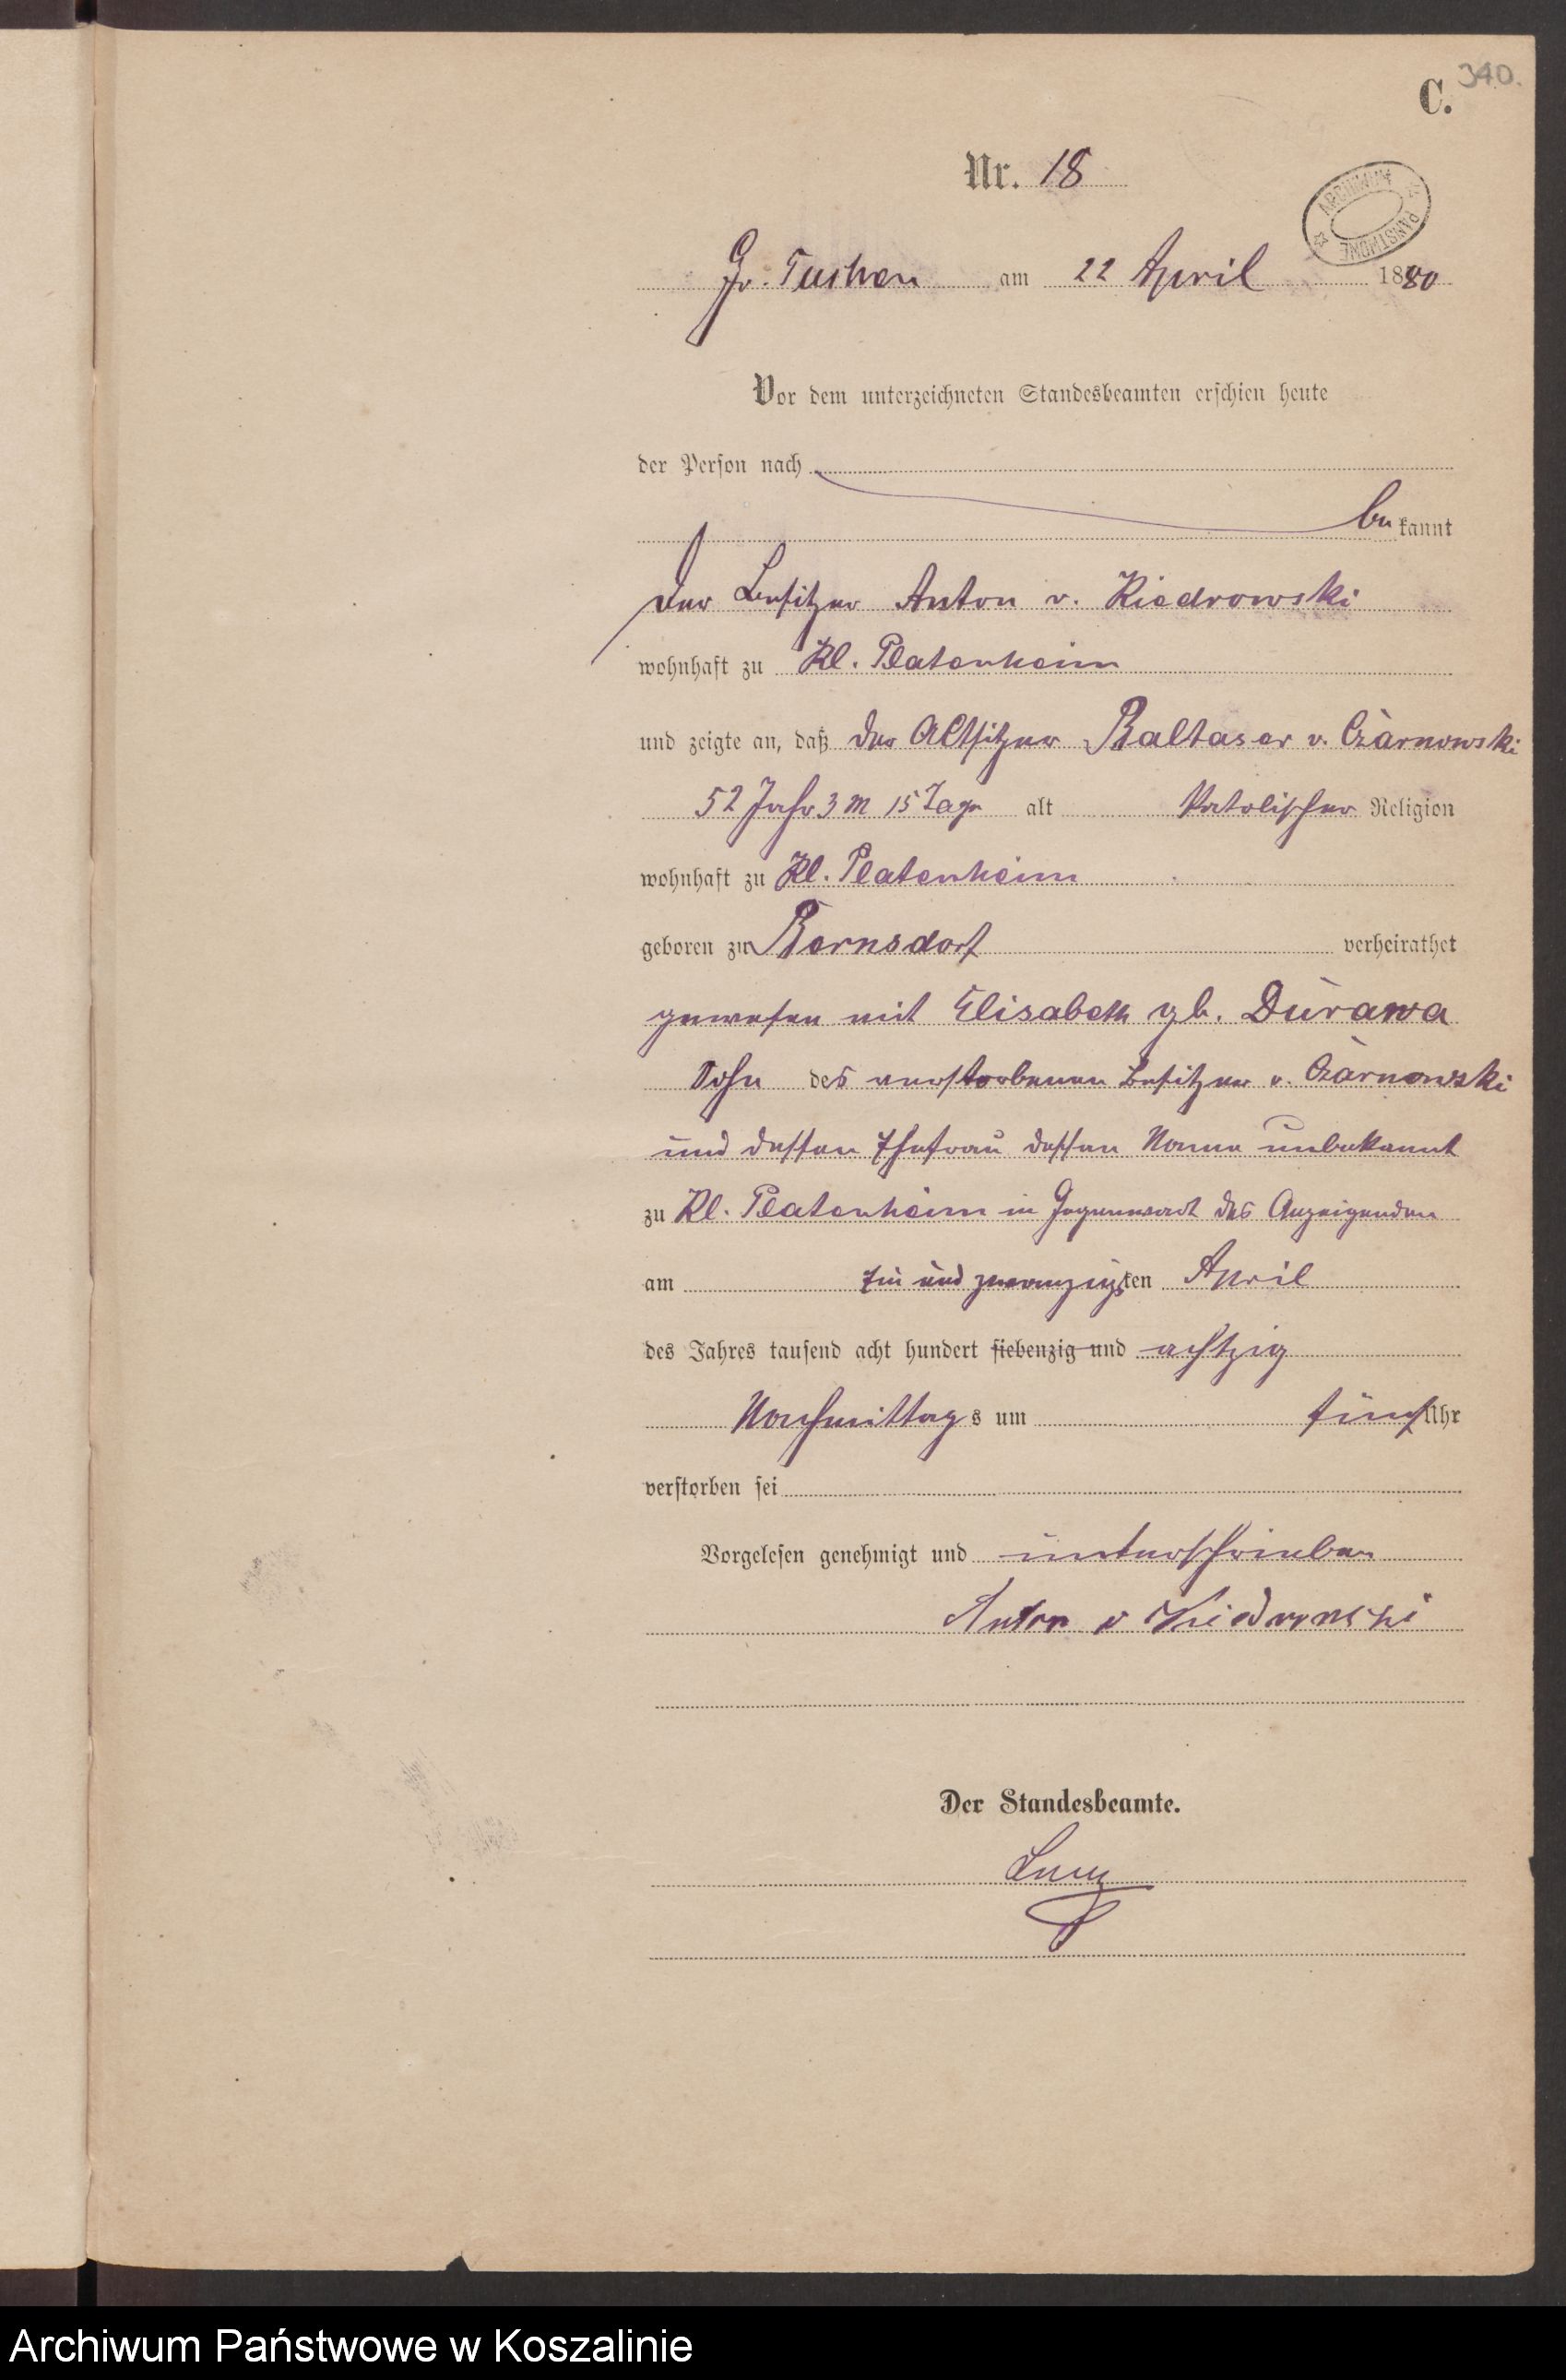 340.
C.
Nr. 18
ARCHIWUM PAŃSTWOWE
Gr. Tuchen am 22 April 1880
Vor dem unterzeichneten Standesbeamten erschien heute
der Person nach
bekannt
der Besitzer Anton v. Kiedrowski
wohnhaft zu Kl. Platenheim
und zeigte an, daß der Altsitzer Baltaser v. Czarnowski
52 Jahr 3 M 15 Tage alt katolischer Religion
wohnhaft zu Kl. Platenheim
geboren zu Bernsdorf verheirathet
gewesen mit Elisabeth gb. Durawa
Sohn des verstorbenen Besitzer v. Czarnowski
und dessen Ehefrau dessen Name unbekannt
zu Kl. Platenheim in Gegenwart des Anzeigenden
am ein und zwanzigsten April
des Jahres tausend acht hundert siebenzig und achtzig
Nachmittags um fünf Uhr
verstorben sei
Vorgelesen genehmigt und unterschrieben
Anton v Kiedrowski
Der Standesbeamte.
Archiwum Państwowe w Koszalinie